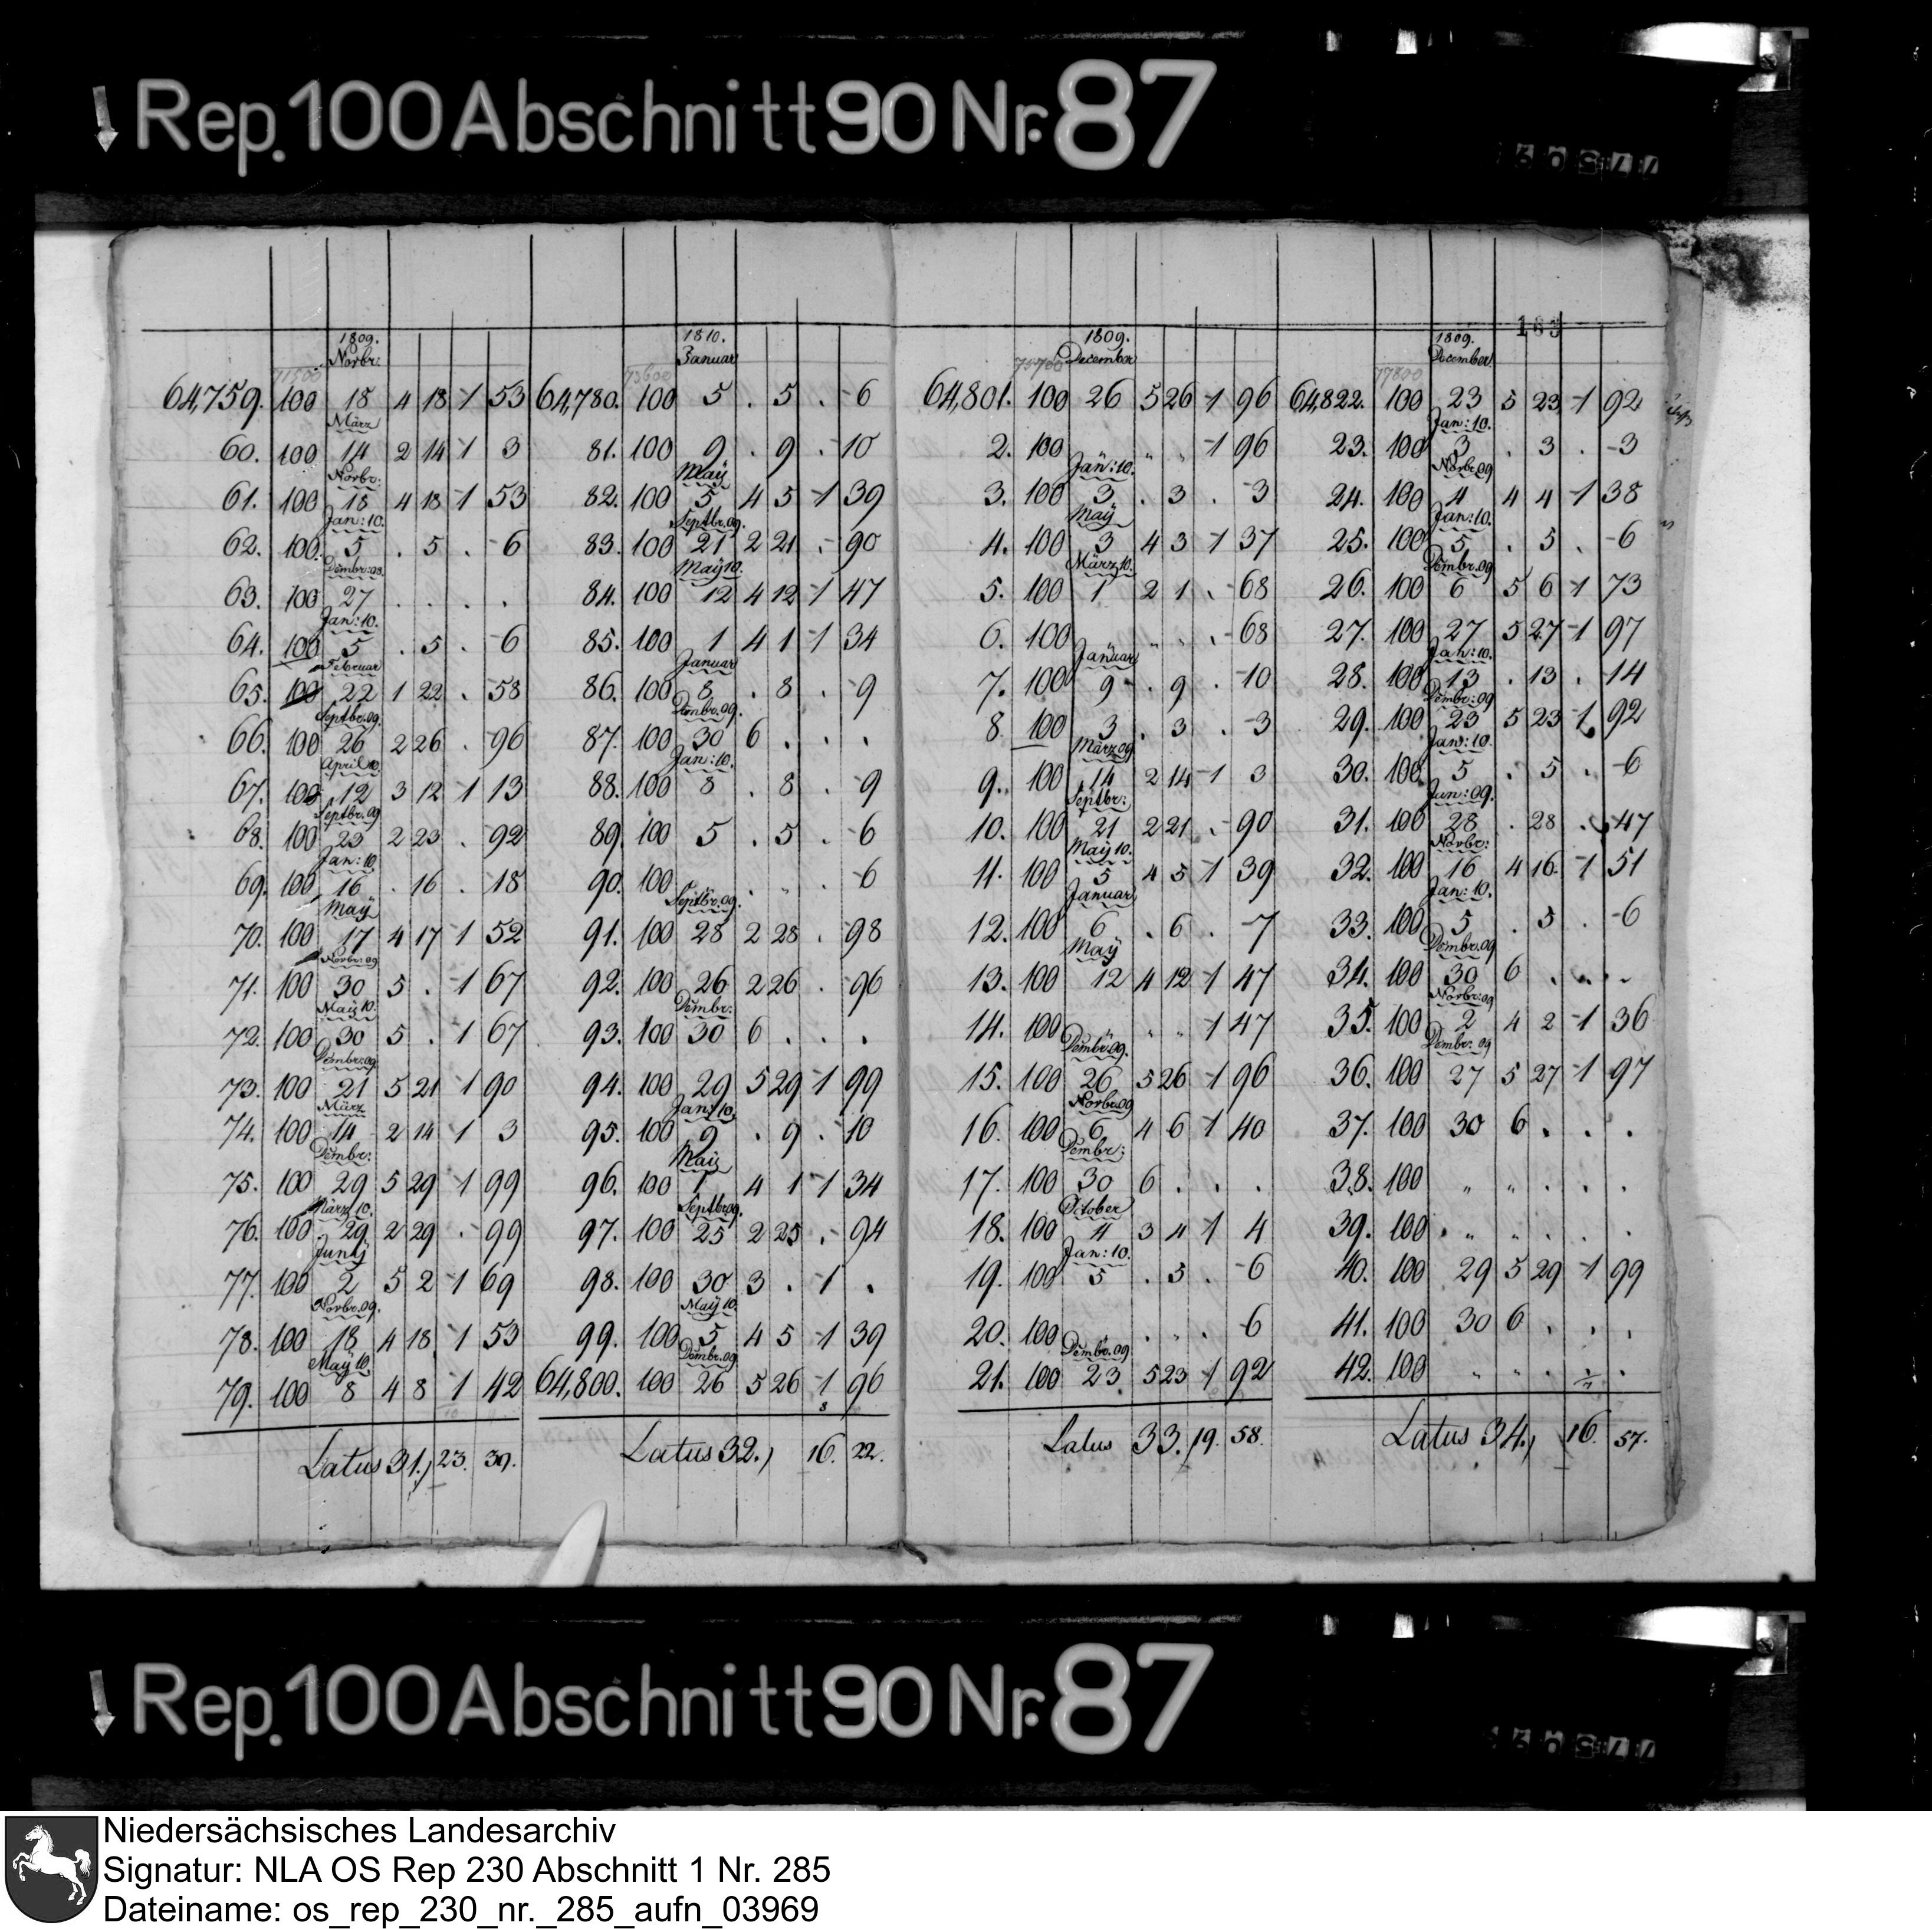 Rep. 100 Abschnitt 90 Nr. 87
77509
183
1809.
Novbr:
71500
64,759. 100 18 4 18 -1 53
März
60. 100 14 2 14 -1 3
Novbr:
61. 100 18 4 18 -1 53
Jan: 10.
62. 100. 5 . 5 . -6
Dembr: 08.
63. 100 27 . . . .
Jan: 10.
64. 100 5 . 5 . -6
Februar
65. 100 22 1 22 . -58
Septbr. 09.
66. 100 26 2 26 . -96
April 10.
67. 100 12 3 12 -1 13
Septbr. 09
68. 100 23 2 23 . -92
Jan: 10.
69. 100 16 . 16 . -18
Maÿ
70. 100 17 4 17 -1 52
Novbr: 09
71. 100 30 5 . -1 67
Maÿ 10.
72. 100 30 5 . -1 67
Dembr: 09
73. 100 21 5 21 -1 90
März
74. 100 14 2 14 -1 3
Dembr:
75. 100 29 5 29 -1 99
März 10.
76. 100 29 2 29 . -99
Junÿ
77. 100 2 5 2 -1 69
Novbr. 09.
78. 100 18 4 18 -1 53
Maÿ 10.
79. 100 8 4 8 -1 42
Latus 31.) 23. 39.
1810.
Januar
73600
64,780. 100 5 . 5 . -6
81. 100 9 . 9 . -10
Maÿ
82. 100 5 4 5 -1 39
Septbr. 09.
83. 100 21 2 21 . -90
Maÿ 10.
84. 100 12 4 12 -1 47
85. 100 1 4 1 -1 34
Januar
86. 100 8 . 8 . -9
Dembr. 09.
87. 100 30 6 . . .
Jan: 10.
88. 100 8 . 8 . -9
89. 100 5 . 5 . -6
90. 100 „ . „ . -6
Septbr. 09.
91. 100 28 2 28 . -98
92. 100 26 2 26 . -96
Dembr:
93. 100 30 6 . . .
94. 100 29 5 29 -1 99
Jan: 10.
95. 100 9 . 9 . -10
Maÿ
96. 100 1 4 1 -1 34
Septbr 09.
97. 100 25 2 25 . -94
98. 100 30 3 . -1 .
Maÿ 10.
99. 100 5 4 5 -1 39
Dembr. 09
64,800. 100 26 5 26 -1 96
Latus 32.) 16. 22.
1809.
December
75700
64,801. 100 26 5 26 -1 96
2. 100 „ „ -1 96
Jan: 10.
3. 100 3 . 3 . -3
Maÿ
4. 100 3 4 3 -1 37
März 10.
5. 100 1 2 1 . -68
6. 100 „ „ . -68
Januar
7. 100 9 . 9 . -10
8. 100 3 . 3 . -3
März 09
9. 100 14 2 14 -1 3
Septbr:
10. 100 21 2 21 . -90
Maÿ 10.
11. 100 5 4 5 -1 39
Januar
12. 100 6 . 6 . -7
Maÿ
13. 100 12 4 12 -1 47
14. 100 „ „ „ -1 47
Dembr. 09.
15. 100 26 5 26 -1 96
Novbr. 09
16. 100 6 4 6 -1 40
Dembr:
17. 100 30 6 . . .
October
18. 100 4 3 4 -1 4
Jan: 10.
19. 100 5 . 5 . -6
20. 100 „ . „ . -6
Dembr. 09.
21. 100 23 5 23 -1 92
Latus 33. 19. 58.
1809.
December
77800
64,822. 100 23 5 23 -1 92
Jan: 10.
23. 100 3 . 3 . -3
Novbr. 09
24. 100 4 4 4 -1 38
Jan: 10.
25. 100 5 . 5 . -6
Dembr. 09
26. 100 6 5 6 -1 73
27. 100 27 5 27 -1 97
Jan: 10.
28. 100 13 . 13 . 14
Dembr: 09
29. 100 23 5 23 -1 92
Jan: 10.
30. 100 5 . 5 . -6
Jun: 09.
31. 100 28 . 28 . -47
Novbr:
32. 100 16 4 16 -1 51
Jan: 10.
33. 100 5 . 5 . -6
Dembr. 09
34. 100 30 6 . . .
Novbr: 09
35. 100 2 4 2 -1 36
Dembr: 09
36. 100 27 5 27 -1 97
37. 100 30 6 . . .
38. 100 „ „ . . .
39. 100 „ „ . . .
40. 100 29 5 29 -1 99
41. 100 30 6 . . .
42. 100 „ „ . . .
Latus 34.) 16. 57.
Rep. 100 Abschnitt 90 Nr. 87
77509
Niedersächsisches Landesarchiv
Signatur: NLA OS Rep 230 Abschnitt 1 Nr. 285
Dateiname: os_rep_230_nr._285_aufn_03969